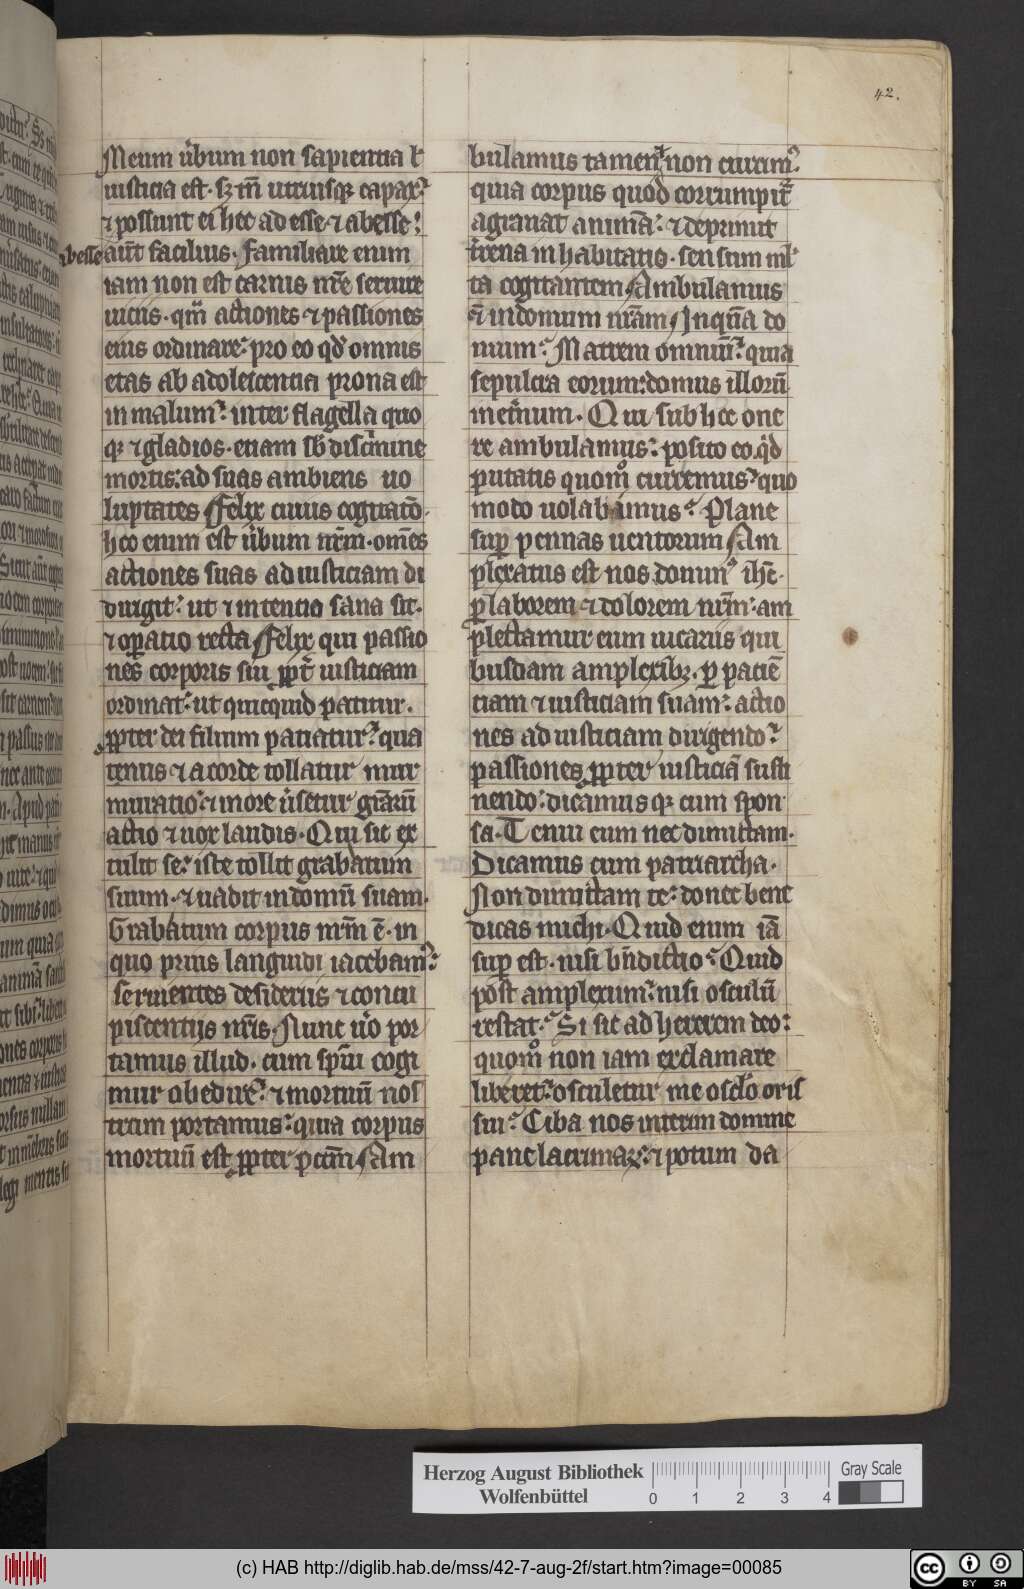 42.
Meum ũbum non sapientia ł
iusticia est · sꝫ tñ utriusqꝫ capax ·
⁊ possunt ei hec ad esse · ⁊ abesse ·
abesse aũt facilius · Familiare enim
iam non est carnis nr̃e seruire
uicus · qm̃ actiones ⁊ passiones
eius ordinare · pro eo qd̃ omnis
etas ab adolescentia prona est
in malum · inter flagella quo
qꝫ ⁊ gladios · etiam sb̃ discͥmine
mortis · ad suas ambiens uo
luptates Felix cuius cognatõ ·
hoc enim est ũbum nr̃m · om̃es
actiones suas ad iusticiam di
dirigit · ut ⁊ intentio sana sit ·
⁊ oꝑatio recta Felix qui passio
nes corporis sui ꝓpt̃ iusticiam
ordinat · ut quicquid patitur ·
ꝓpter dei filium patiatur · qua
tenus ⁊ a corde tollatur mur
muratio · ⁊ in ore ũsetur gr̃arũ
actio ⁊ uox laudis · Qui sic ex
tulit se · iste tollit grabatum
suum · ⁊ uadit in domũ suam ·
Grabatum corpus nr̃m ẽ · in
quo prius languidi iacebamꝰ ·
seruientes desideriis ⁊ concu
piscentijs nr̃is · Nunc ũo por
tamus illud · cum sp̃ui cogi
mur obedire · ⁊ mortuũ nos
trum portamus · quia corpus
mortuũ est ꝓpter pc̃cm̃ Am
bulamus tamen · ⁊ non currimꝰ ·
quia corpus quod corrumpit̃
agrauat animã · ⁊ deprimit
t̃rena inhabitatio · sensum ml̃
ta cogitantem Ambulamus
⁊ in domum nr̃am Inqͥna do
mum · Matrem omniũ · quia
sepulcra eorum · domus illorũ
inet̃num · Qui sub hoc one
re ambulamus · posito eo · qͥd
putatis quomͦ curremus · quo
modo uolabimus · Plane
suꝑ pennas uentorum Am
plexatus est nos dominꝰ ih̃c ·
ꝑ laborem ⁊ dolorem nr̃m · am
plectamur eum uicariis qui
busdam amplexibꝫ · ꝑ paciẽ
ciam ⁊ iusticiam suam · actio
nes ad iusticiam dirigendo ·
passiones ꝓpter iusticiã susti
nendo · dicamus qꝫ cum spon
sa · Tenui eum nec dimittam ·
Dicamus cum patriarcha ·
Non dimittam te · donec bene
dicas michi · Quid enim iã
suꝑ est · nisi bñdictio · Quid
post amplexum · nisi osculũ
restat · Si sic ad hererem deo ·
quomͦ non iam exclamare
liberet · osculetur me oscl̃o oris
sui · Ciba nos interim domine
pane lacrimaꝝ · ⁊ potum da
Herzog August Bibliothek
Wolfenbüttel
0 1 2 3 4
Gray Scale
(c) HAB http://diglib.hab.de/mss/42-7-aug-2f/start.htm?image=00085
cc BY SA